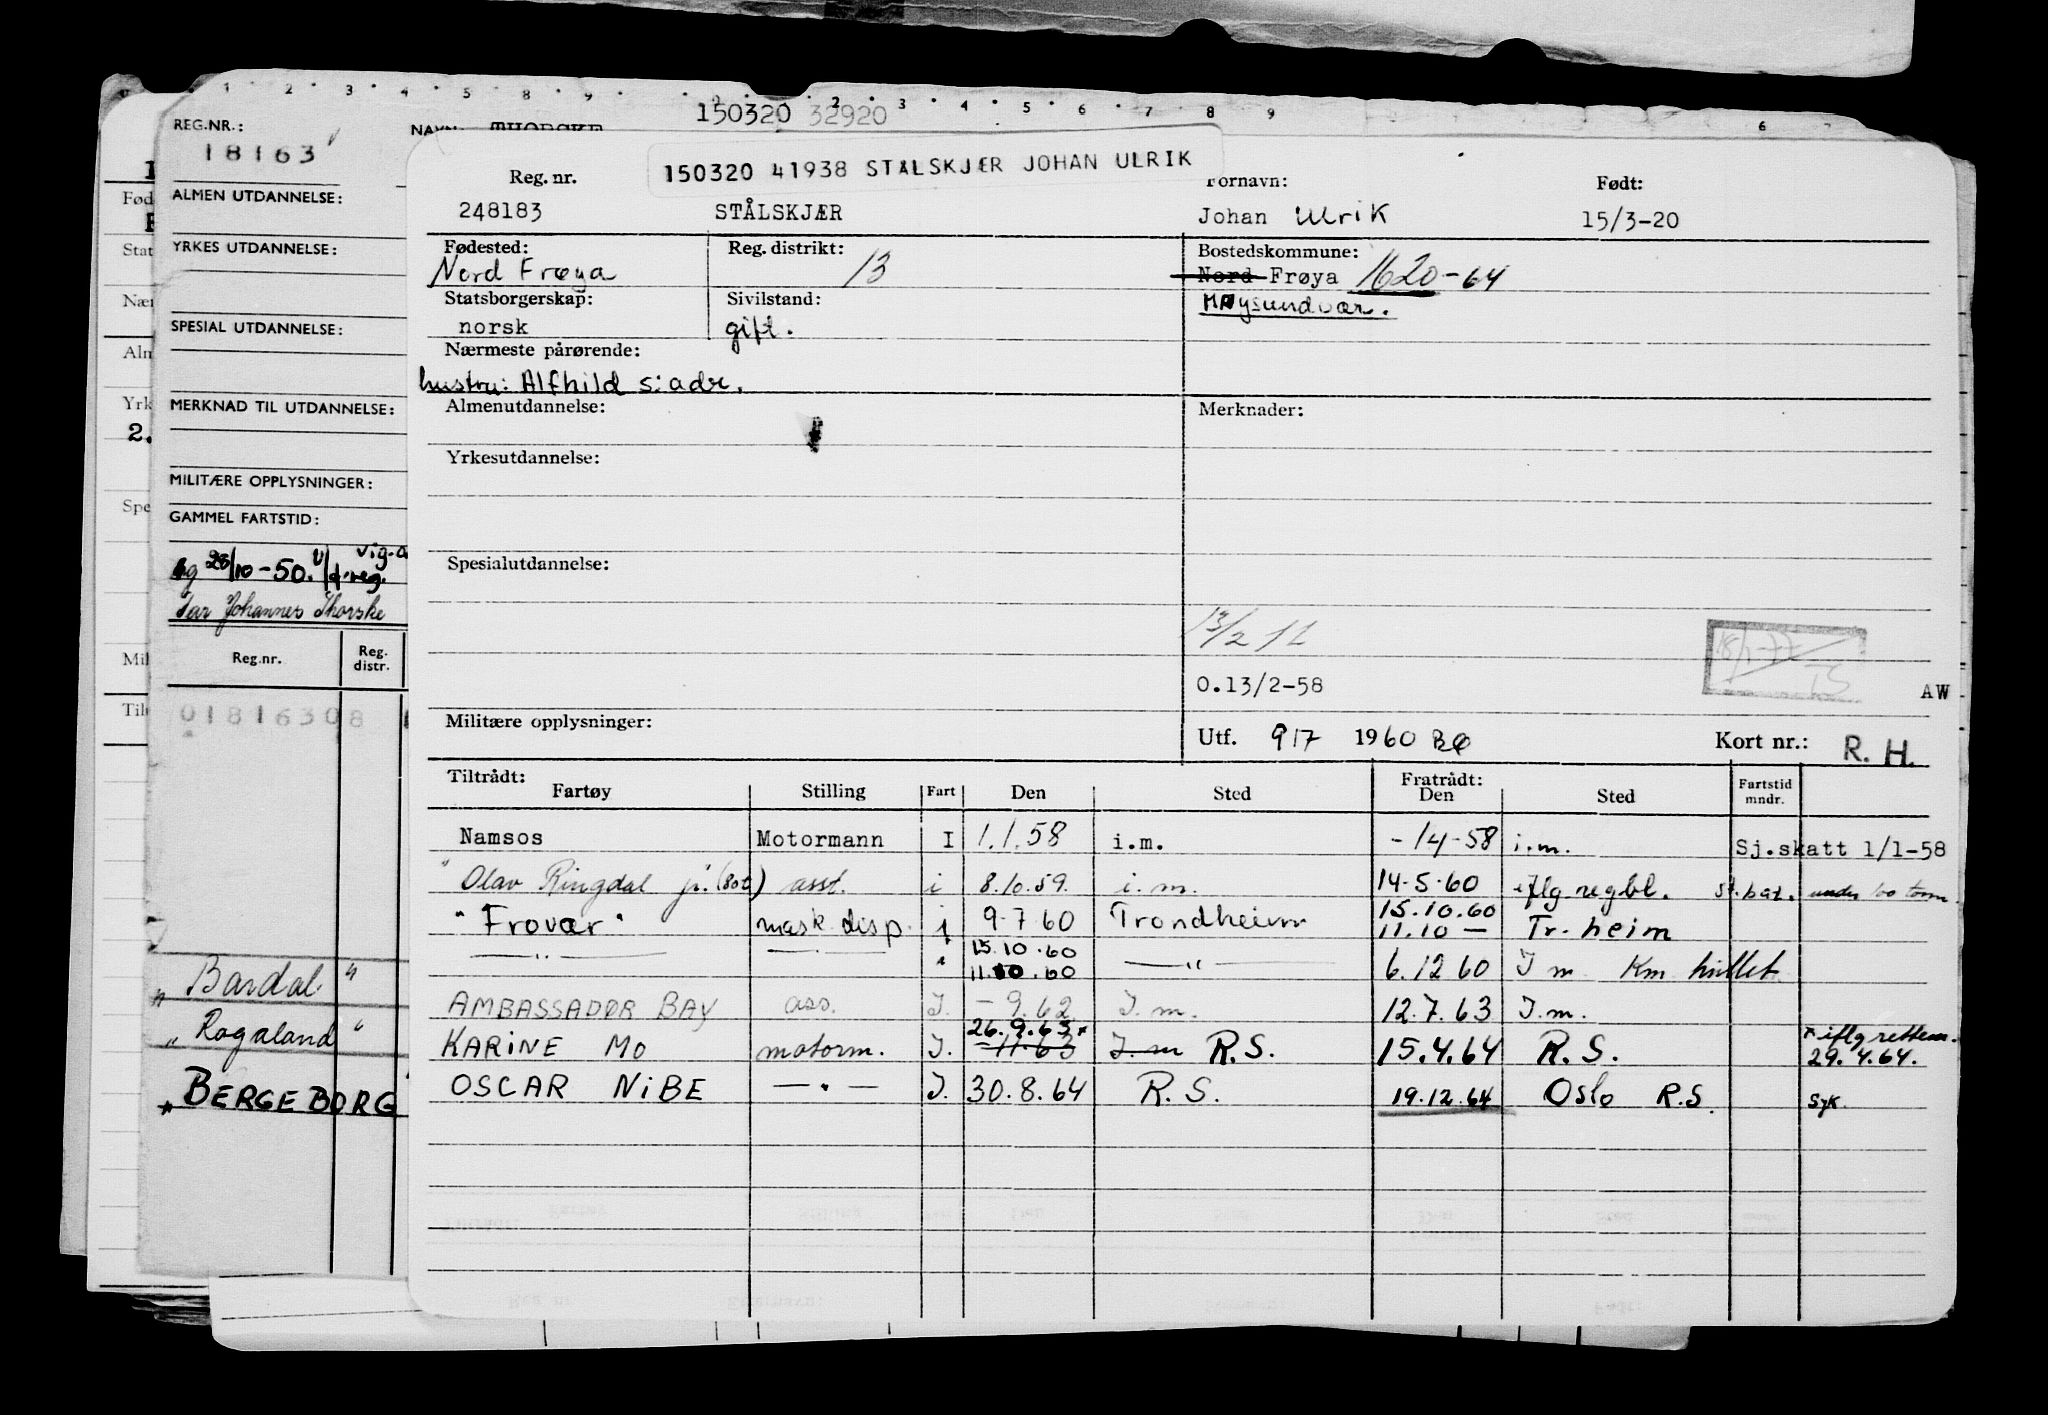 1 2 3 4 5 6 8 9 2 3 4 5 6 7 8 9 6
150320 32920
REG.NR.: NAVN: THORSKE
18163
ALMEN UTDANNELSE:
YRKES UTDANNELSE:
SPESIAL UTDANNELSE:
MERKNAD TIL UTDANNELSE:
2.
MILITÆRE OPPLYSNINGER:
GAMMEL FARTSTID:
28/10-50.
far Johannes Thorske
Reg.nr. Reg. distr.
01816308
"Bardal"
"Rogaland"
"BERGEBORG
150320 41938 STÅLSKJÆR JOHAN ULRIK
Reg. nr. Fornavn: Født:
248183 STÅLSKJÆR Johan Ulrik 15/3-20
Fødested: Reg. distrikt: Bostedskommune:
Nord Frøya 13 Nord Frøya 1620-64
Statsborgerskap: Sivilstand:
norsk gift.
Nærmeste pårørende:
hustru: Alfhild s: adr.
Almenutdannelse: Merknader:
Yrkesutdannelse:
Spesialutdannelse:
13/2
18/1-77 TS
O.13/2-58 AW
Militære opplysninger: Utf. 9/7 1960 Kort nr.: R. H.
Tiltrådt: Fratrådt: Fartstid
Fartøy Stilling Fart Den Sted Den Sted mndr.
Namsos Motormann I 1.1.58 i.m. - 14-58 i.m. Sj.skatt 1/1-58
" Olav Ringdal jr. (80t) asst. i 8.10.59. i.m. 14.5.60 iflg regbl. st.baz. under 100 tonn
"Frovær" mask disp. i 9.7 60 Trondheim 15.10.60
11.10 — Tr.heim
— " — — i 15.10.60
11.10.60 — " — 6.12 60 I m Km hullet
AMBASSADØR BAY ass. I. - 9.62 I.m. 12.7.63 I.m.
KARINE MO motorm. I. 26.9.63 x
- 11.63 I.m R.S. 15.4.64 R.S. x iflg rettem.
29.4.64.
OSCAR NIBE — " — I. 30.8.64 R.S. 19.12.64 Oslo R.S. syk.